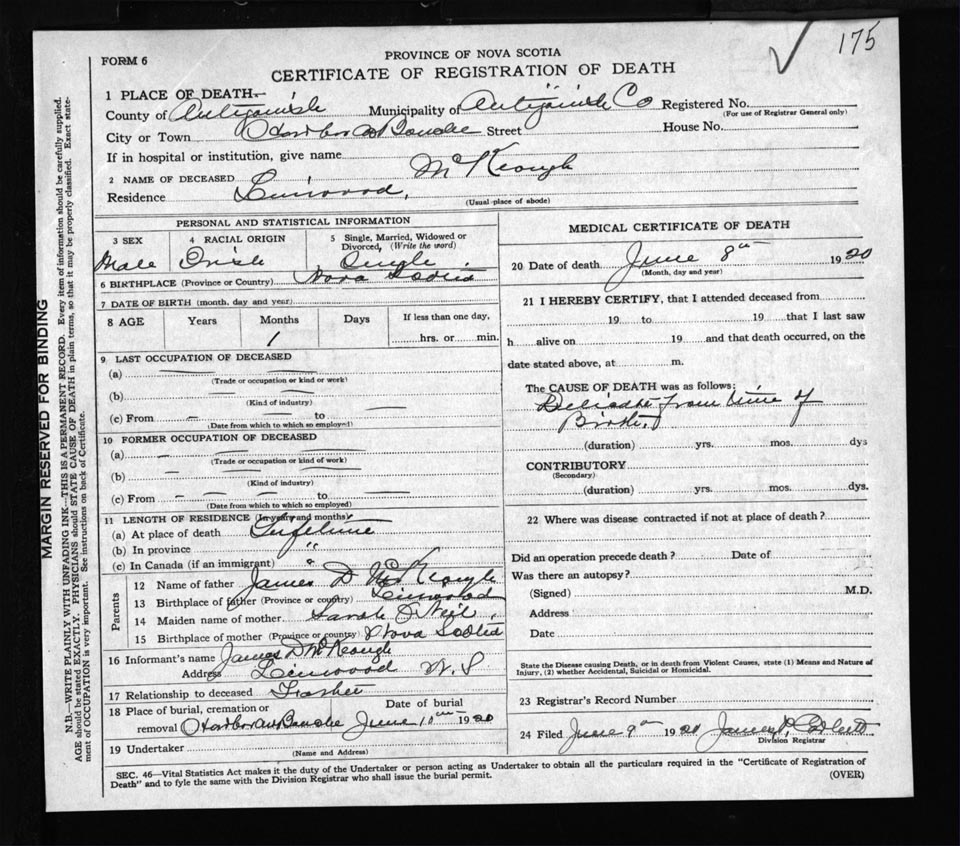 175
FORM 6
PROVINCE OF NOVA SCOTIA
CERTIFICATE OF REGISTRATION OF DEATH
1 PLACE OF DEATH—
County of Antigonish Municipality of Antigonish Co Registered No.
(For use of Registrar General only)
City or Town Harbor au Bouche Street House No.
If in hospital or institution, give name
2 NAME OF DECEASED McKeough
Residence Linwood,
(Usual place of abode)
PERSONAL AND STATISTICAL INFORMATION
3 SEX 4 RACIAL ORIGIN 5 Single, Married, Widowed or Divorced, (Write the word)
Male Irish Single
6 BIRTHPLACE (Province or Country) Nova Scotia
7 DATE OF BIRTH (month, day and year)
8 AGE Years Months Days If less than one day,
1 hrs. or min.
9 LAST OCCUPATION OF DECEASED
(a) —
(Trade or occupation or kind or work)
(b) —
(Kind of industry)
(c) From — to —
(Date from which to which so employed)
10 FORMER OCCUPATION OF DECEASED
(a) —
(Trade or occupation or kind of work)
(b) —
(Kind of industry)
(c) From — to —
(Date from which to which so employed)
11 LENGTH OF RESIDENCE (In years and months)
(a) At place of death Lifetime
(b) In province "
(c) In Canada (if an immigrant) "
Parents
12 Name of father James D McKeough
13 Birthplace of father (Province or country) Linwood
14 Maiden name of mother Sarah O'Neil
15 Birthplace of mother (Province or country) Nova Scotia
16 Informant's name James D McKeough
Address Linwood N.S
17 Relationship to deceased Father
18 Place of burial, cremation or Date of burial
removal Harbor au Bouche June 10th 1920
19 Undertaker
(Name and Address)
MEDICAL CERTIFICATE OF DEATH
20 Date of death June 8th 1920
(Month, day and year)
21 I HEREBY CERTIFY, that I attended deceased from
19 to 19 that I last saw
h alive on 19 and that death occurred, on the
date stated above, at m.
The CAUSE OF DEATH was as follows:
Delicate from time of
Birth
(duration) yrs. mos. dys
CONTRIBUTORY
(Secondary)
(duration) yrs. mos. dys.
22 Where was disease contracted if not at place of death?
Did an operation precede death? Date of
Was there an autopsy?
(Signed) M.D.
Address
Date
State the Disease causing Death, or in death from Violent Causes, state (1) Means and Nature of
Injury, (2) whether Accidental, Suicidal or Homicidal.
23 Registrar's Record Number
24 Filed June 9th 1920 James P. Corbett
Division Registrar
SEC. 46—Vital Statistics Act makes it the duty of the Undertaker or person acting as Undertaker to obtain all the particulars required in the "Certificate of Registration of
Death" and to fyle the same with the Division Registrar who shall issue the burial permit.
(OVER)
MARGIN RESERVED FOR BINDING
N.B.—WRITE PLAINLY WITH UNFADING INK—THIS IS A PERMANENT RECORD. Every item of information should be carefully supplied.
AGE should be stated EXACTLY. PHYSICIANS should STATE CAUSE OF DEATH in plain terms, so that it may be properly classified. Exact state-
ment of OCCUPATION is very important. See instructions on back of Certificate.